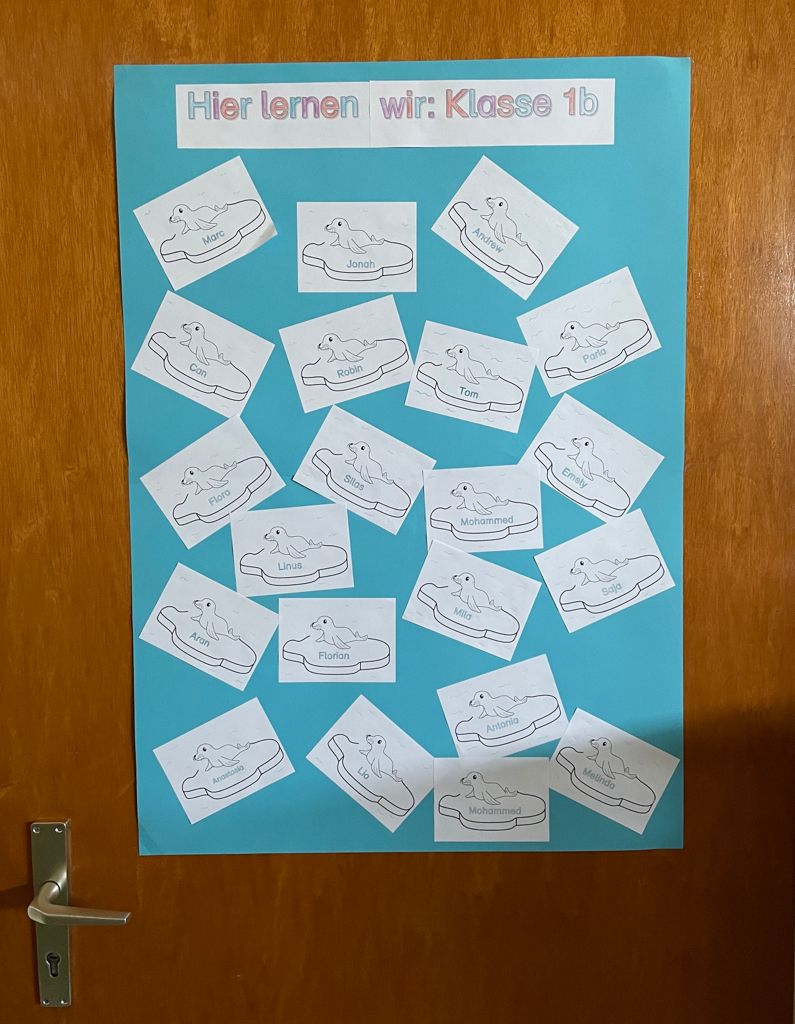 Hier lernen wir: Klasse 1b
Marc
Jonah
Andrew
Can
Robin
Tom
Parla
Flora
Silas
Mohammed
Emely
Linus
Saja
Aran
Florian
Mila
Antonia
Anastasia
Lio
Mohammed
Melinda